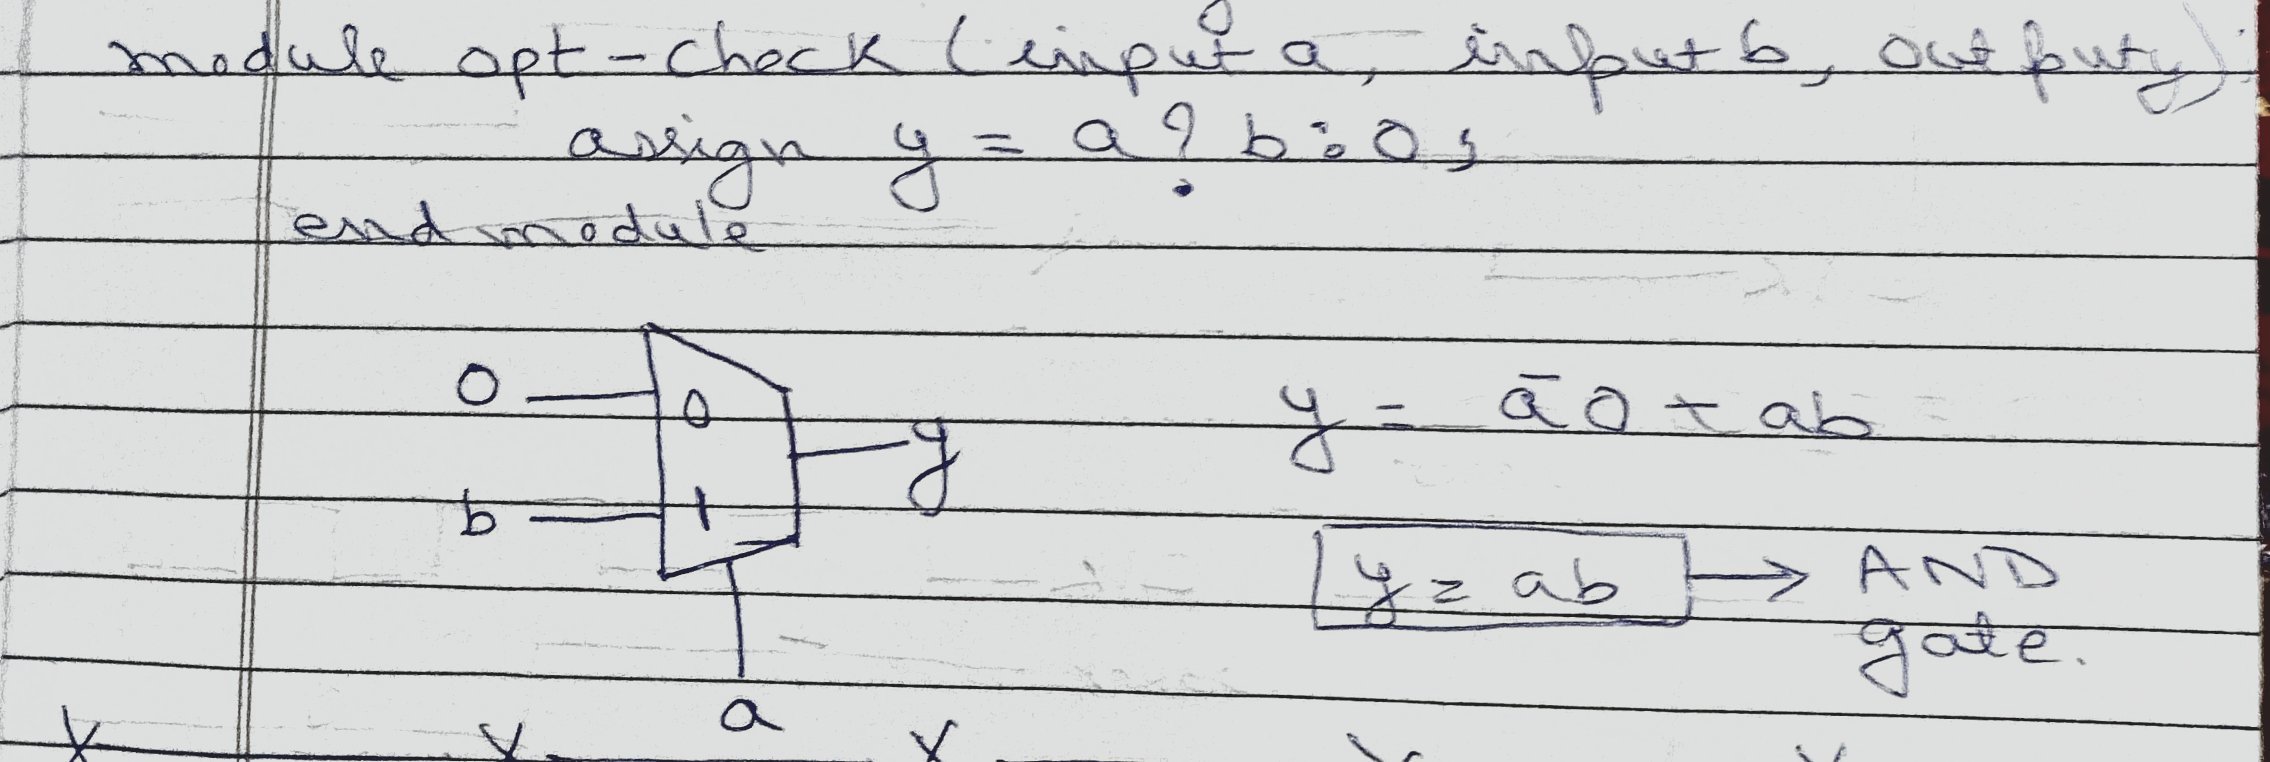 module opt-check (input a, input b, output y);
assign y = a ? b : 0 ;
end module
0
0
y
y = ā 0 + ab
b
1
y = ab → AND
gate.
a